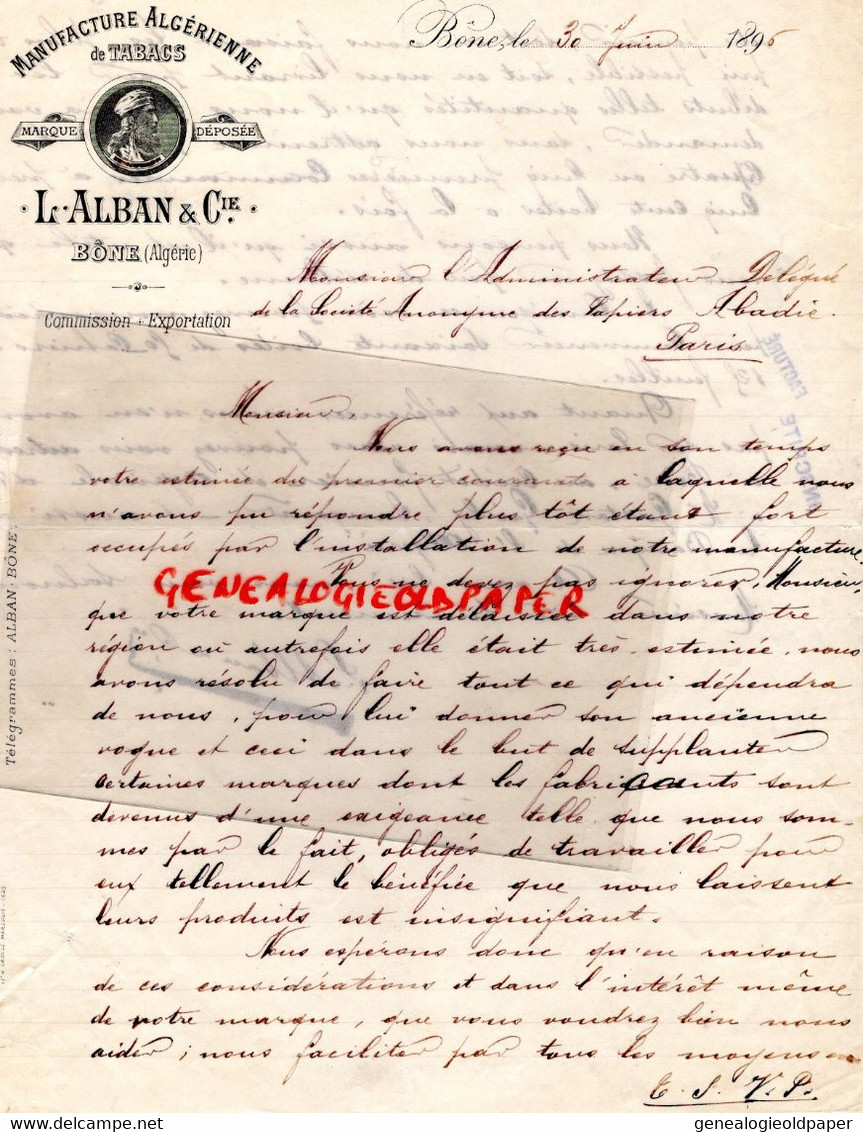 MANUFACTURE ALGÉRIENNE
de TABACS
MARQUE DÉPOSÉE
L. ALBAN & CIE.
BÔNE (Algérie)
Commission - Exportation
Bône, le 30 Juin 1896
Monsieur l'Administrateur Délégué
de la Société Anonyme des Papiers Abadie.
Paris
FACTURE
Monsieur,
Nous avons reçu en son temps
votre estimée du premier courant à laquelle nous
n'avons pu répondre plus tôt étant fort
occupés par l'installation de notre manufacture.
Vous ne devez pas ignorer, Monsieur,
GENEALOGIEOLDPAPER
que votre marque est délaissée dans notre
région où autrefois elle était très estimée, nous
avons résolu de faire tout ce qui dépendra
de nous, pour lui donner son ancienne
vogue et ceci dans le but de supplanter
certaines marques dont les fabricants sont
devenus d'une exigeance telle que nous som-
mes par le fait, obligés de travailler pour
eux tellement le bénéfice que nous laissent
leurs produits est insignifiant.
Nous espérons donc qu'en raison
de ces considérations et dans l'intérêt même
de votre marque, que vous voudrez bien nous
aider ; nous faciliter par tous les moyens en
T. S. V. P.
Télégrammes : ALBAN - BÔNE.
delcampe.net
genealogieoldpaper